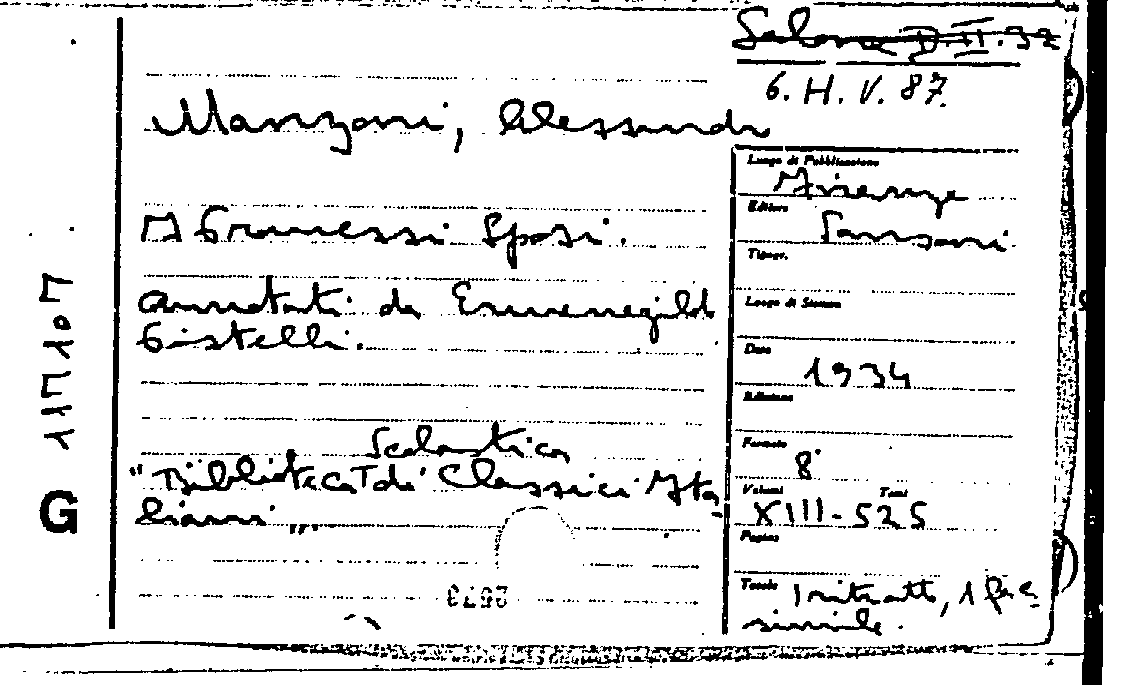 Salone D. II. 32
6. H. V. 87.
Manzoni, Alessandro
I Promessi Sposi.
annotati da Ermenegildo
Pistelli.
Scolastica
"Biblioteca di Classici Ita-
liani".
Luogo di Pubblicazione
Firenze
Editore
Sansoni
Tipogr.
Luogo di Stampa
Data
1934
Edizione
Formato
8°
Volumi Tomi
XIII-525
Pagine
Tavole 1 ritratto, 1 fac-
simile.
G